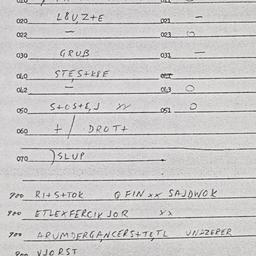 020 L8U,Z+E 021 —
022 — 023 O
030 GRUB 031 —
040 STES+K8E
042 — 043 O
050 S+OS+E,J xx 051 O
060 +/ DROT+
070 )SLUP
900 RI+S+TOK GFIN xx SAJDWOK
900 ETLEXFERCIK JOR xx
900 ARUMDERGANCERS+TE,TL UNZZEPER
900 VJORST